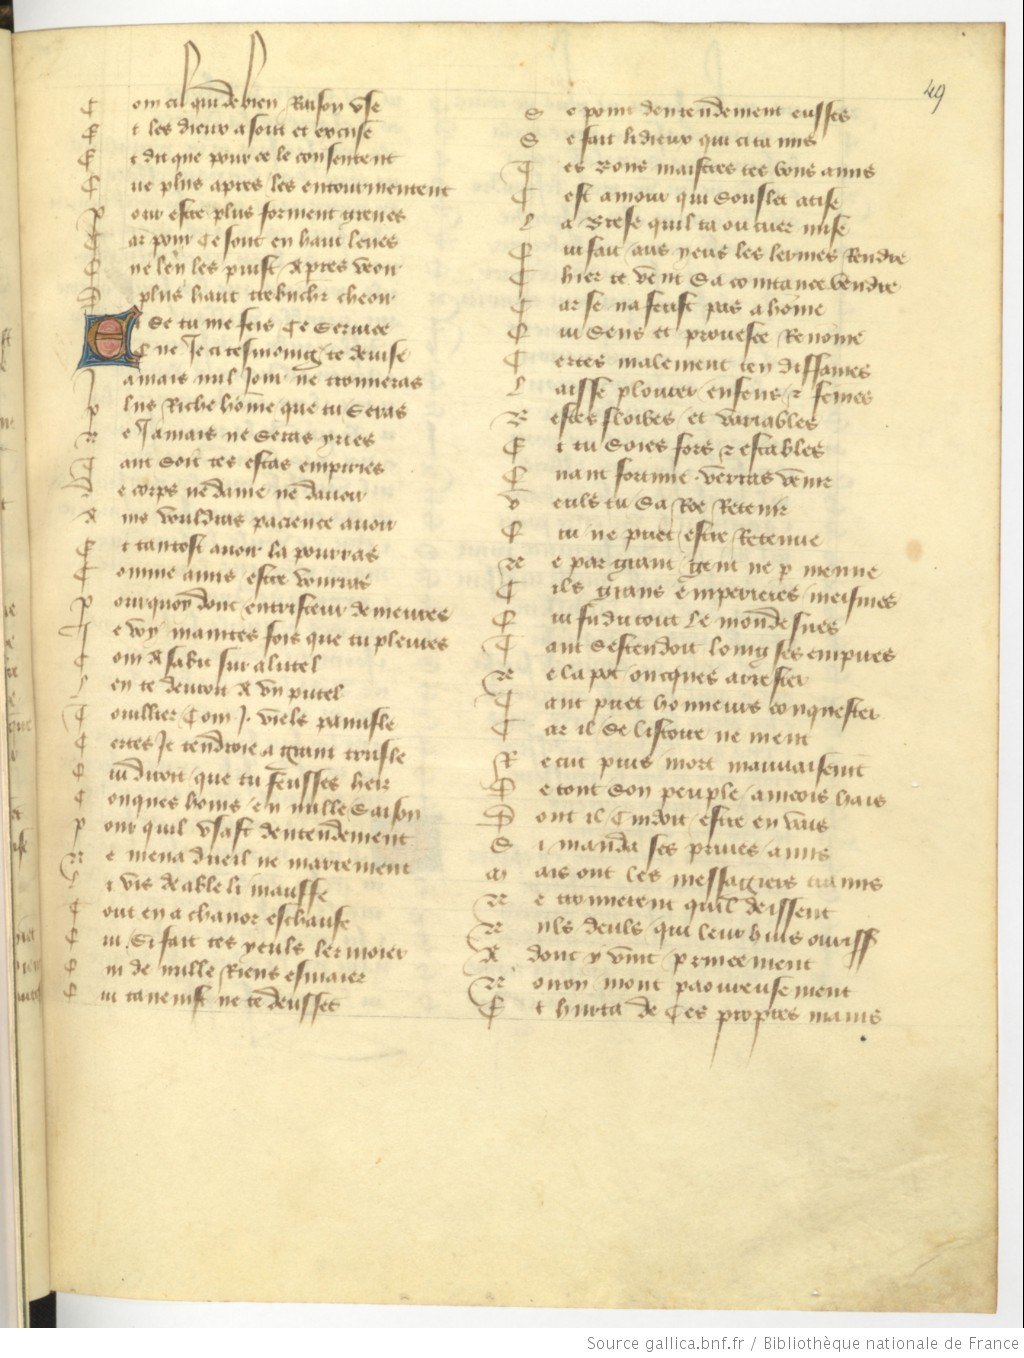 49
C om cil qui de bien Raison use
E t les dieux assout et excuse
E t dit que pour ce le consentent
Q ue plus apres les entourmentent
P our estre plus forment greues
C ar pour ce sont en haut leues
C ne len les puist apres veoir
D plus haut trebuchir cheoir
E t se tu me fais ce seruice
Q ne Je ci tesmoing te deuise
J amais nul Jour ne trouueras
P lus Riche home que tu seras
N e Jamais ne seras yries
T ant soit tes estas empiries
D e corps ne dame ne dauoir
A ins vouldras pacience auoir
E t tantost auoir la pourras
C omme amis estre vourras
P ourquoy donc en tristeur demeures
J e voy maintes fois que tu pleures
C om alabic sur alutel
L en te deuroit a un putel
T ouillier Com J. viels panufle
C ertes Je tendroie a grant trufle
Q ui diroit que tu feusses heir
C onques homs en nulle saison
P our quil usast dentendement
N e mena dueil ne marrement
L i vis deable li mauffe
T out en a chanor eschaufe
Q ui si fait tes yeuls lermoier
Q ui de nulle Riens esmaier
Q ui tauenist ne te deusses
S e point dentendement eusses
S e fait li dieux qui ci ta mis
T es bons maistres tes bons amis
C est amour qui souflet atise
L a brese quil ta ou cuer mise
Q ui fait aus yeus les lermes Rendre
C hier te veut sa cointance vendre
C ar se naferist pas a home
Q ui sens et prouesce Renome
C ertes malement ten diffames
L aisse plourer enfens et femes
B estes floibes et variables
E t tu soies fors et estables
Q uant fortune verras venir
V euls tu sa Roe Retenir
Q tu ne puet estre Retenue
N e par grant gent ne p menue
C ils grans emperieres meismes
Q ui fu du tout le monde sires
T ant sestendoit loing ses empires
N e la pot oncques arrester
T ant puet honneurs conquester
C ar il se listoire ne ment
R ecut puis mort mauuaisemt
D e tout son peuple amcois hais
D ont il Cuidoit estre en vais
S i manda ses priues amis
M ais ont les messagiers tramis
N e trouuerent quil deissent
N uls deuls qui leur huis ouuriss
A donc y vint priueement
N oiron mont paoureusement
E t hurta de Ces propres mains
Source gallica.bnf.fr / Bibliothèque nationale de France